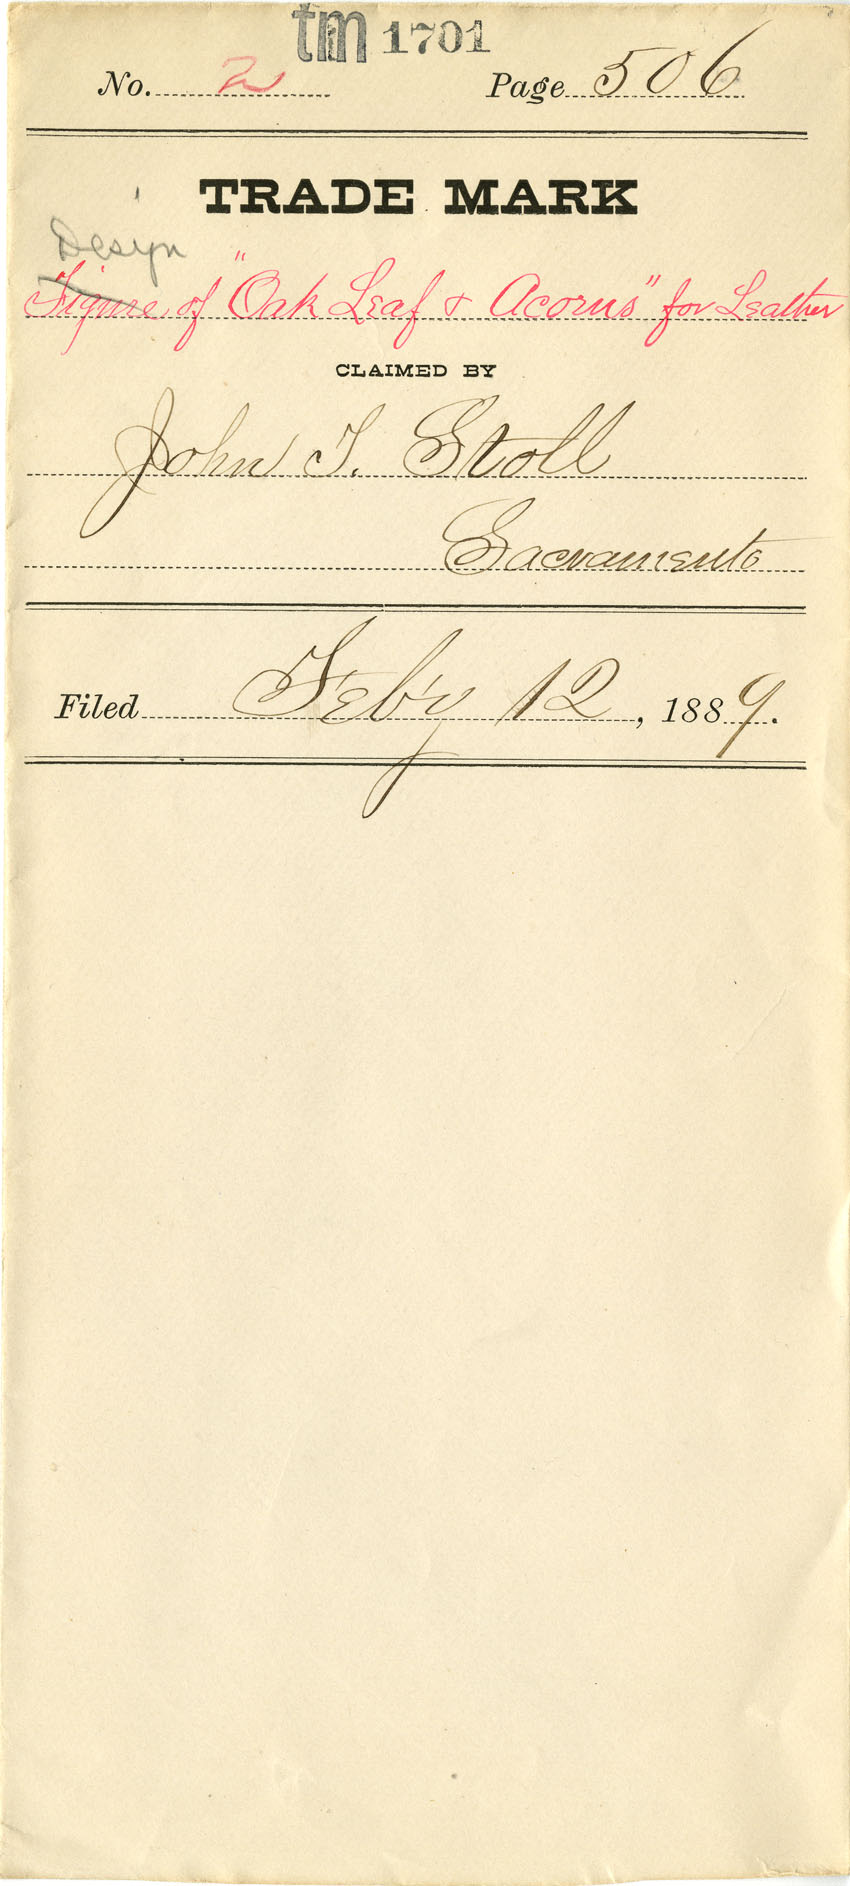 tm 1701
No. 2 Page 506
TRADE MARK
Design
Figure of "Oak Leaf & Acorns" for Leather
CLAIMED BY
John T. Stoll
Sacramento
Filed Feb'y 12, 1889.